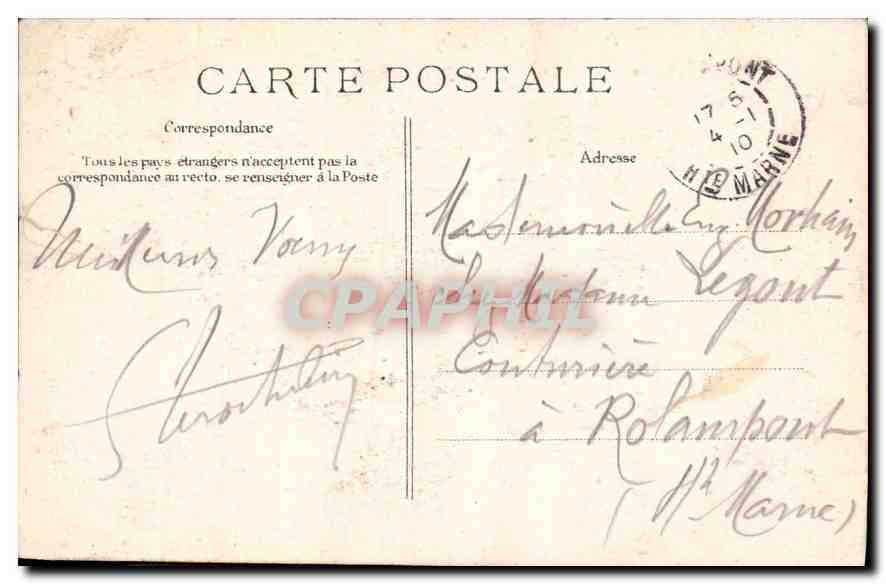 CARTE POSTALE
Correspondance
Tous les pays étrangers n'acceptent pas la
correspondance au recto, se renseigner à la Poste
Meilleurs Voeux
Adresse
PONT
17 6
4 -1
10
HTE MARNE
Mademoiselle Eug Morhain
chez Madame Legont
Couturière
à Rolampont
(Hte Marne)
CPAPHIL